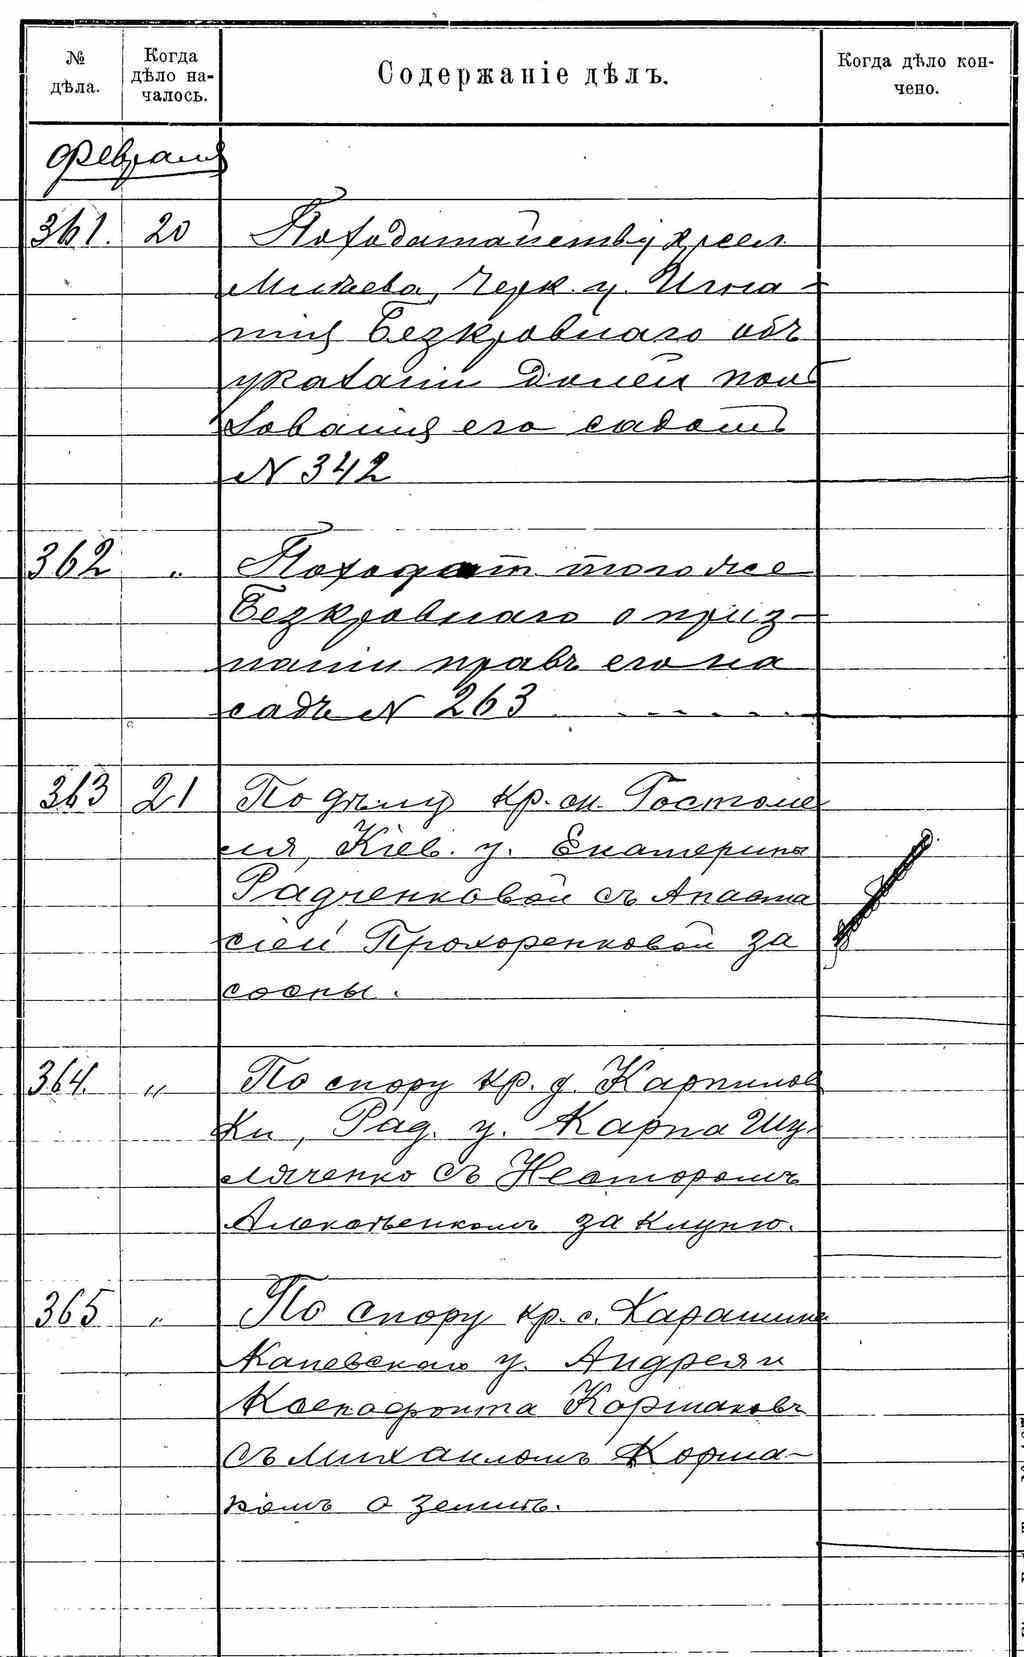 № дѣла.
Когда дѣло на-
чалось.
Содержаніе дѣлъ.
Когда дѣло кон-
чено.
Февраля
361. 20 По ходатайству кр. сел.
Млиева, Черк. у. Игна-
тія Безкровнаго объ
указаніи далѣе поль
зованія его садомъ
N 342
362 " По ходат. того же
Безкровнаго о приз-
наніи правъ его на
садъ N 263
363 21 По дѣлу кр. м. Гостоме
ля, Кіев. у. Екатерины
Радченковой съ Анаста
сіей Прохоренковой за
сосны.
364. " По спору кр. д. Карпилов
ки, Рад. у. Карпа Шу-
ляченко съ Несторомъ
Алексѣенкомъ за клуню.
365 " По спору кр. с. Карашина
Каневскаго у. Андрея и
Ксенофонта Кормаковъ
съ Михаиломъ Корма-
комъ о землѣ.